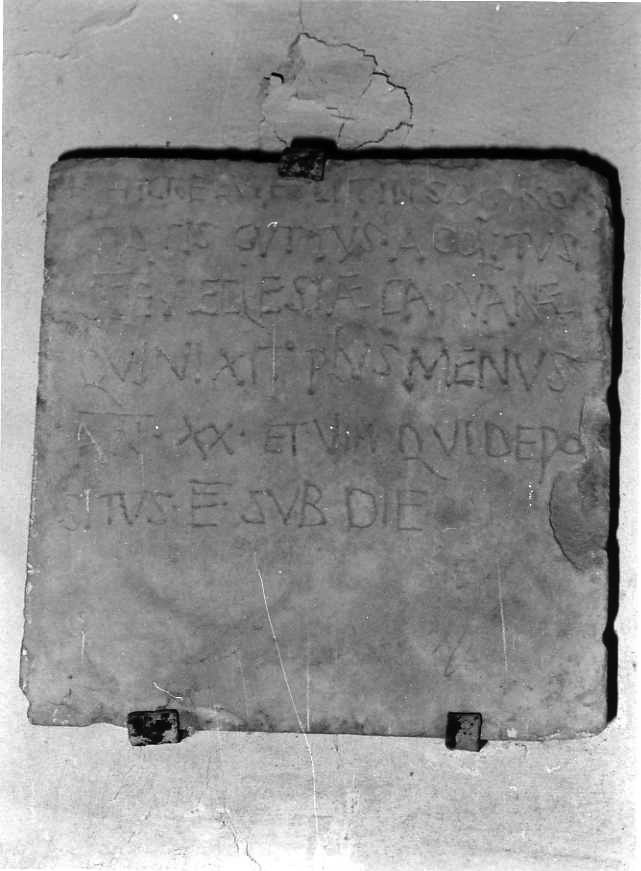 + HIC REQVIESCIT IN SOMNO
PACIS GVTTVS ACOLITVS
SCE ECLESIÆ CAPVANÆ
QVI VIXIT PLVS MENVS
ANN XX ET VNV QVI DEPO
SITVS E SVB DIE